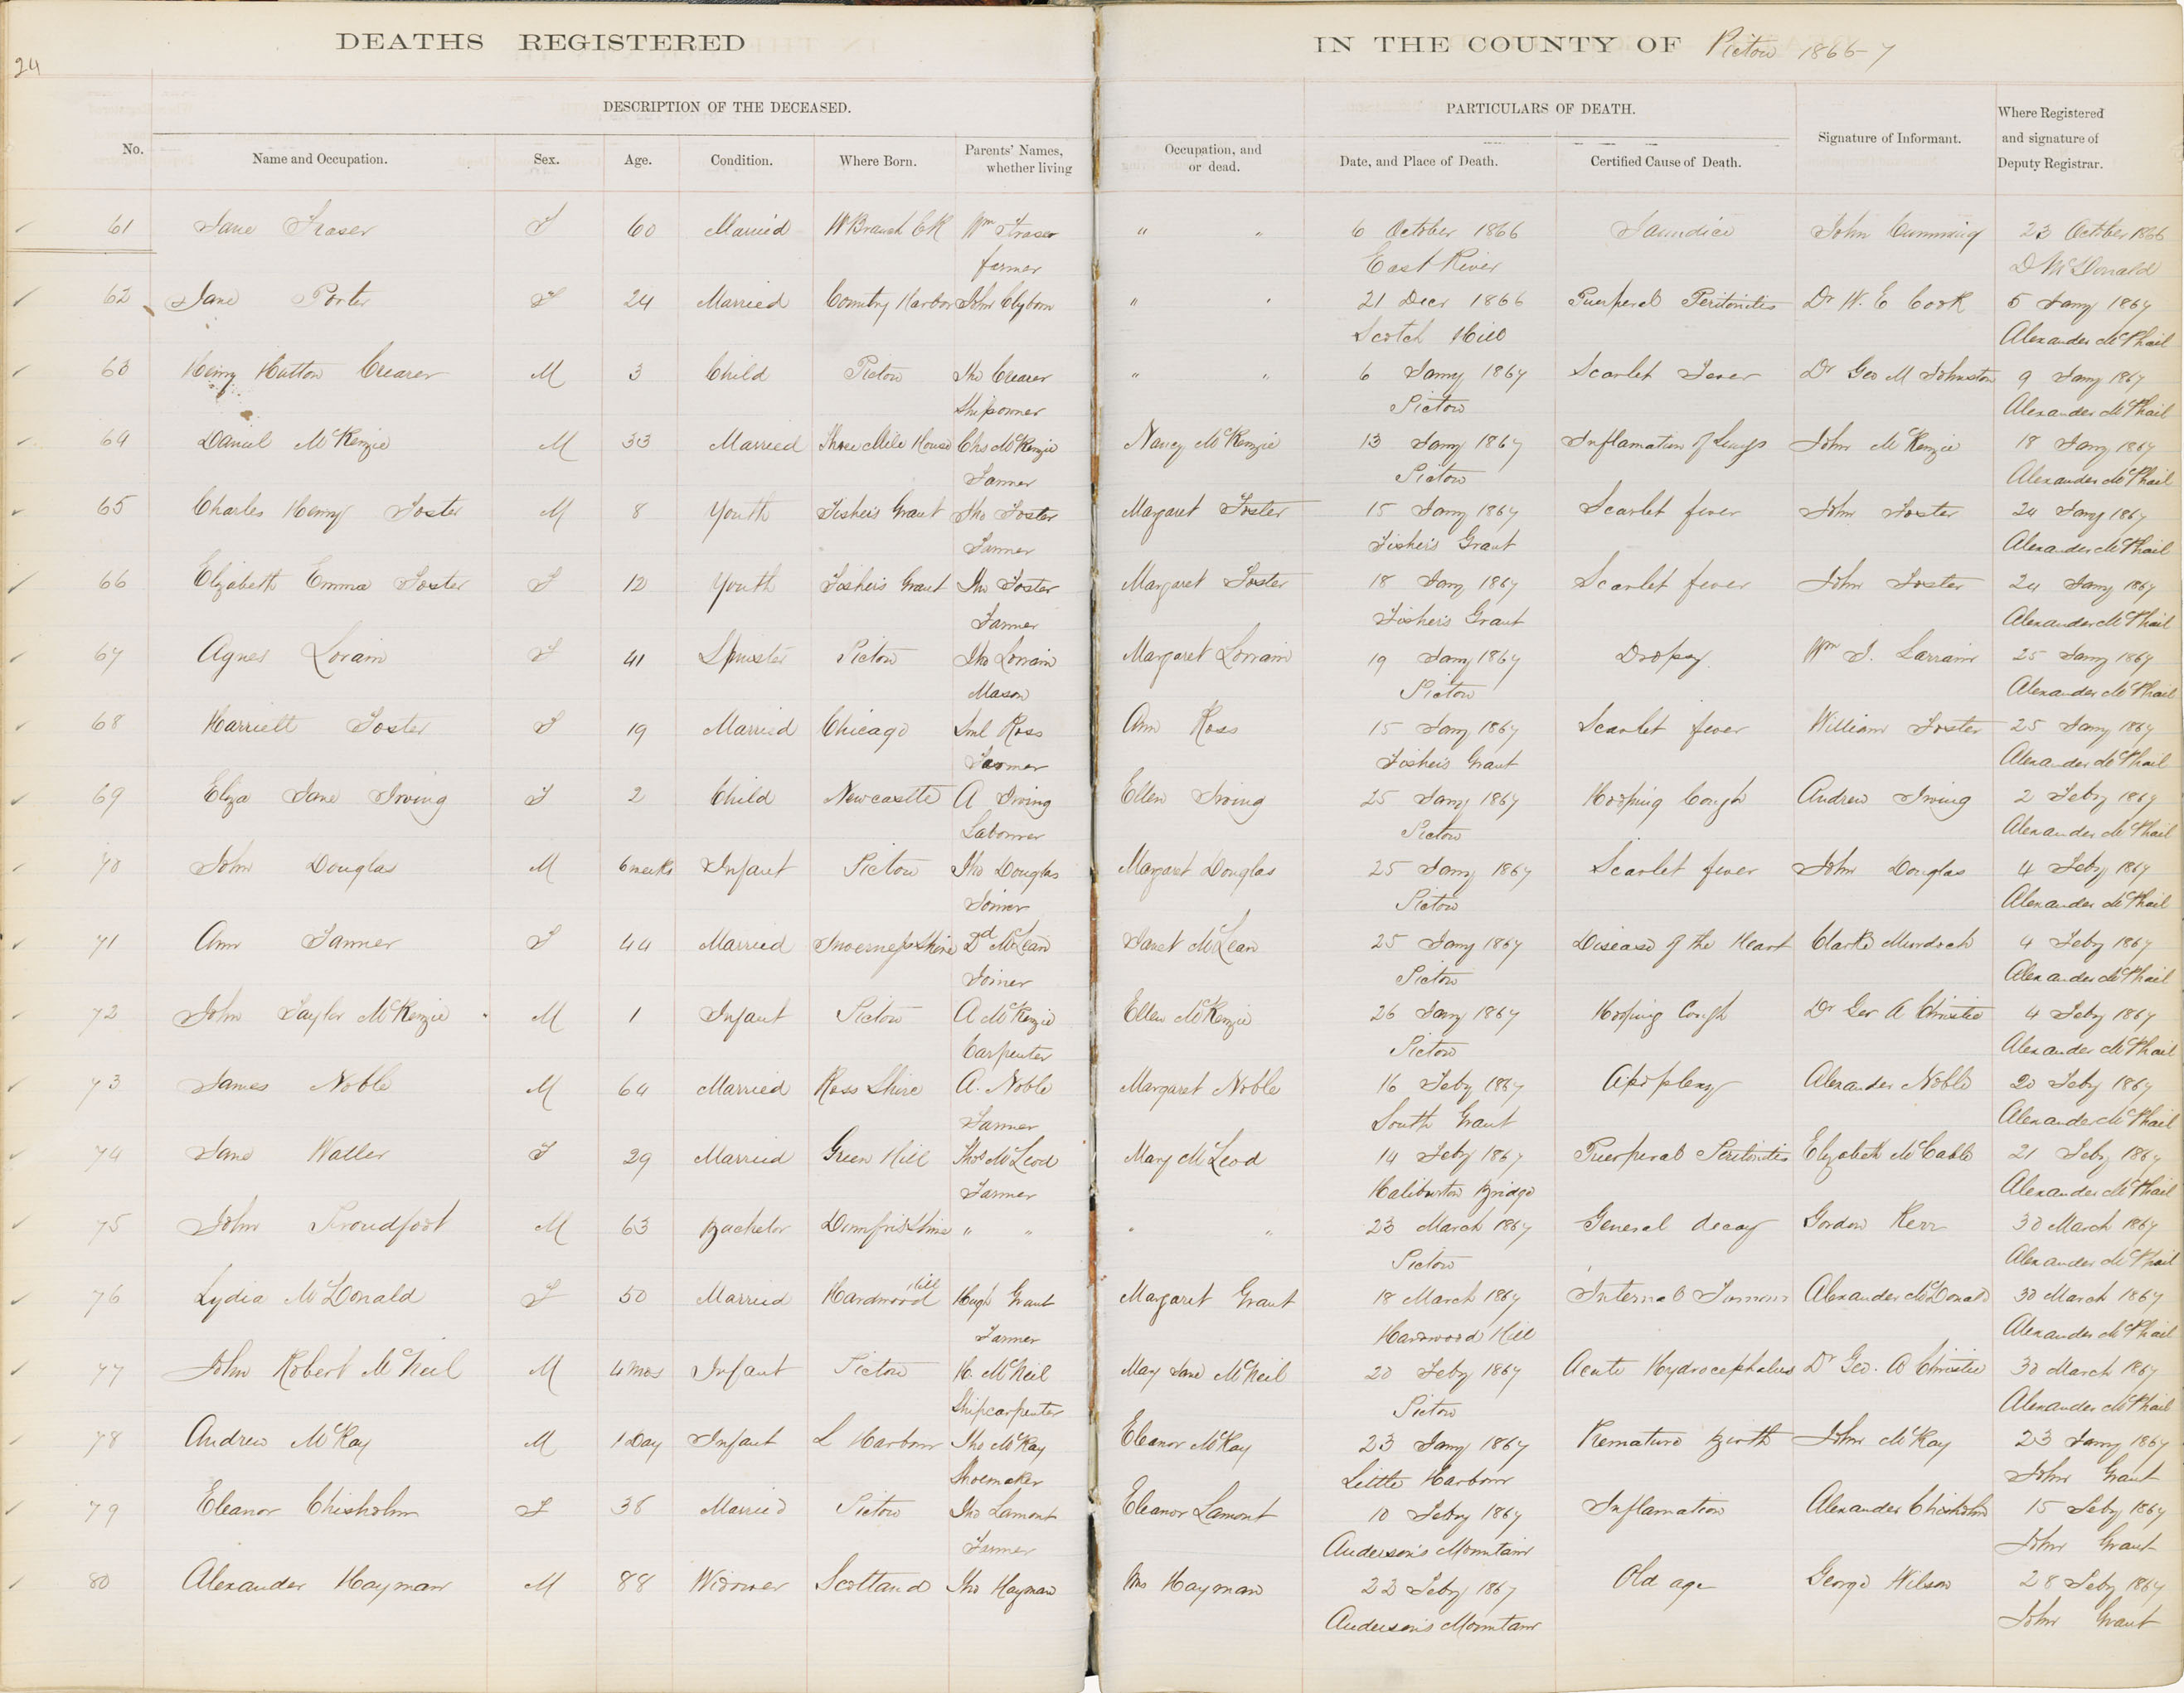 24
DEATHS REGISTERED IN THE COUNTY OF Pictou 1866-7
DESCRIPTION OF THE DECEASED. PARTICULARS OF DEATH.
No. Name and Occupation. Sex. Age. Condition. Where Born. Parents' Names, whether living Occupation, and or dead. Date, and Place of Death. Certified Cause of Death. Signature of Informant. Where Registered and signature of Deputy Registrar.
61 Jane Fraser F 60 Married W Branch ER Wm Fraser " " 6 October 1866 Jaundice John Cumming 23 October 1866
farmer East River D McDonald
62 Jane Porter F 24 Married Country Harbor John Clyborn " " 21 Decr 1866 Puerperal Peritonitis Dr W. E Cook 5 Jany 1867
Scotch Hill Alexander McPhail
63 Henry Hatton Crearer M 3 Child Pictou Jno Crearer " " 6 Jany 1867 Scarlet Fever Dr Geo M Johnston 9 Jany 1867
Shipowner Pictou Alexander McPhail
64 Daniel McKenzie M 33 Married Three Mile House Chs McKenzie Nancy McKenzie 13 Jany 1867 Inflamation of Lungs John McKenzie 18 Jany 1867
Farmer Pictou Alexander McPhail
65 Charles Henry Foster M 8 Youth Fisher's Grant Jno Foster Margaret Foster 15 Jany 1867 Scarlet fever John Foster 24 Jany 1867
Farmer Fisher's Grant Alexander McPhail
66 Elizabeth Emma Foster F 12 Youth Fisher's Grant Jno Foster Margaret Foster 18 Jany 1867 Scarlet fever John Foster 24 Jany 1867
Farmer Fisher's Grant Alexander McPhail
67 Agnes Lorain F 41 Spinster Pictou Jno Lorrain Margaret Lorrain 19 Jany 1867 Dropsy Wm J. Larrain 25 Jany 1867
Mason Pictou Alexander McPhail
68 Harriett Foster F 19 Married Chicago Saml Ross Ann Ross 15 Jany 1867 Scarlet fever William Foster 25 Jany 1867
Farmer Fisher's Grant Alexander McPhail
69 Eliza Jane Irving F 2 Child Newcastle A Irving Ellen Irving 25 Jany 1867 Hooping Cough Andrew Irving 2 Feby 1867
Labourer Pictou Alexander McPhail
70 John Douglas M 6 weeks Infant Pictou Jno Douglas Margaret Douglas 25 Jany 1867 Scarlet fever John Douglas 4 Feby 1867
Joiner Pictou Alexander McPhail
71 Ann Tanner F 44 Married Invernessshire Dd McLean Janet McLean 25 Jany 1867 Disease of the Heart Clarke Murdoch 4 Feby 1867
Joiner Pictou Alexander McPhail
72 John Taylor McKenzie M 1 Infant Pictou A McKenzie Ellen McKenzie 26 Jany 1867 Hooping Cough Dr Geo A Christie 4 Feby 1867
Carpenter Pictou Alexander McPhail
73 James Noble M 64 Married Ross Shire A. Noble Margaret Noble 16 Feby 1867 Apoplexy Alexander Noble 20 Feby 1867
Farmer South Grant Alexander McPhail
74 Jane Watler F 29 Married Green Hill Thos McLeod Mary McLeod 14 Feby 1867 Puerperal Peritinitis Elizabeth McCabb 21 Feby 1867
Farmer Haliburton Bridge Alexander McPhail
75 John Proudfoot M 63 Bachelor Dumfrisshire " " " " 23 March 1867 General decay Gordon Kerr 30 March 1867
Pictou Alexander McPhail
76 Lydia McDonald F 50 Married Hardwood Hill Hugh Grant Margaret Grant 18 March 1867 Internal Tumour Alexander McDonald 30 March 1867
Farmer Hardwood Hill Alexander McPhail
77 John Robert McNeil M 4 mos Infant Pictou H. McNeil Mary Jane McNeil 20 Feby 1867 Acute Hydrocephalus Dr Geo. A Christie 30 March 1867
Shipcarpenter Pictou Alexander McPhail
78 Andrew McKay M 1 Day Infant L Harbour Jno McKay Eleanor McKay 23 Jany 1867 Premature Birth John McKay 23 Jany 1867
Shoemaker Little Harbour John Grant
79 Eleanor Chisholm F 38 Married Pictou Jno Lamont Eleanor Lamont 10 Febry 1867 Inflamation Alexander Chisholm 15 Feby 1867
Farmer Anderson's Mountain John Grant
80 Alexander Hayman M 88 Widower Scotland Jno Hayman Mrs Hayman 22 Feby 1867 Old age George Wilson 28 Feby 1867
Anderson's Mountain John Grant